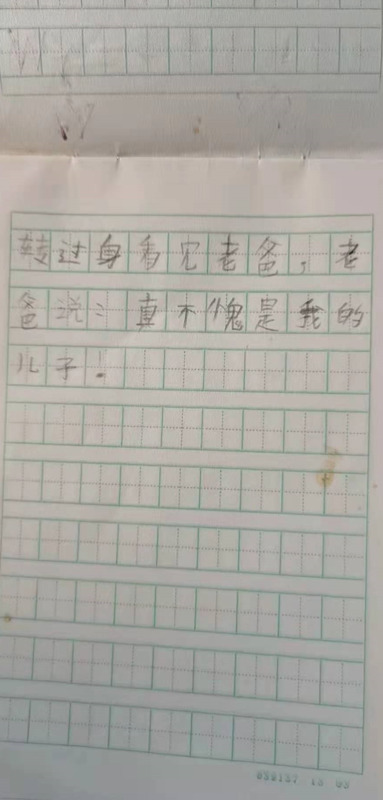 转过身看见老爸，老
爸说：真不愧是我的
儿子！